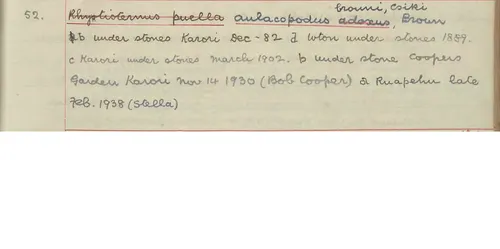 brouni, Csiki
52. Rhystisternus puella aulacopodus adoxus, Broun
b under stones Karori Dec - 82 d Wton under stones 1859.
c Karori under stones March 1902. b under stone Coopers
Garden Karori Nov 14 1930 (Bob Cooper) a Ruapehu late
Feb. 1938 (Stella)